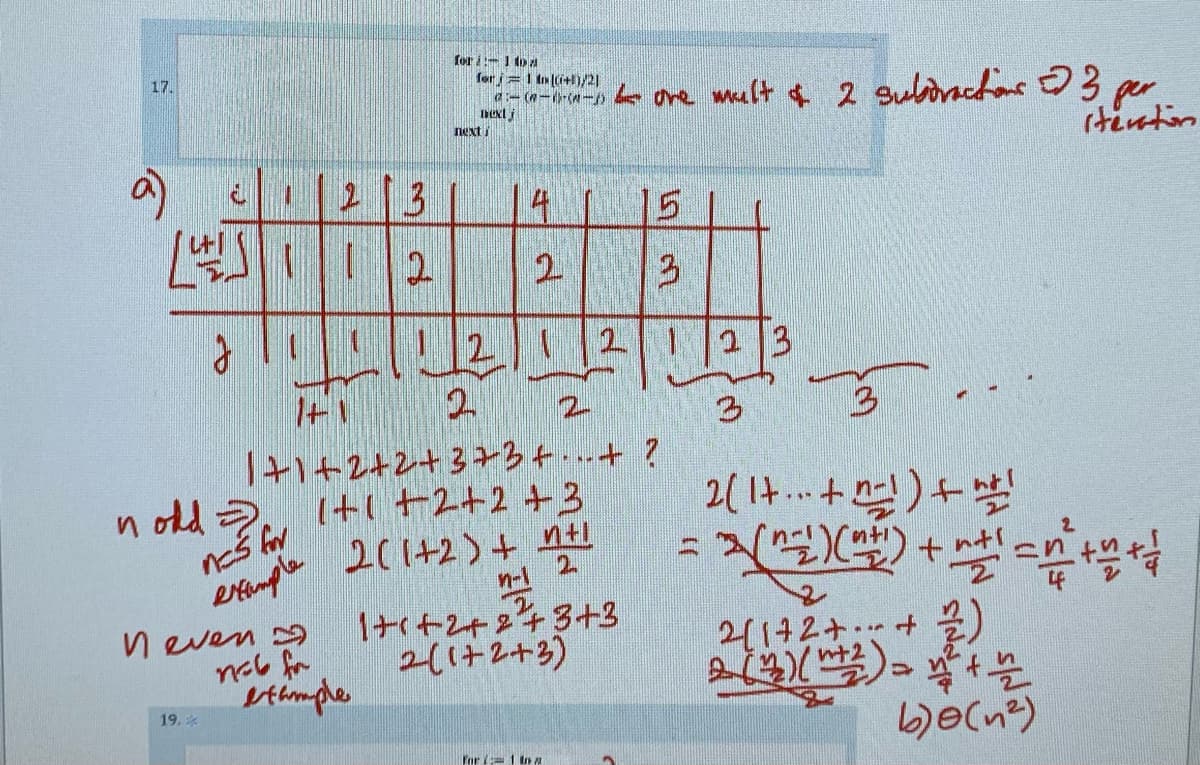 17.
for i := 1 to n
for j := 1 to ⌊(i+1)/2⌋
a := (n−i)·(n−j) ← one mult & 2 subtractions ⇒ 3 per iteration
next j
next i
a) i 1 2 3 4 5
⌊i+1/2⌋ 1 1 2 2 3
j 1 1 1 2 1 2 1 2 3
1+1 2 2 3 3 ...
1+1+2+2+3+3+...+ ?
n odd ⇒ 1+1+2+2+3 2(1+...+ n-1/2) + n+1/2
n=5 for example 2(1+2)+ n+1/2 = 2(n-1/2)(n+1/2)/2 + n+1/2 = n²/4 + n/2 + 1/4
n-1/2
n even ⇒ 1+1+2+2+3+3 2(1+2+...+ n/2)
n=6 for example 2(1+2+3) 2(n/2)(n+2/2)/2 = n²/4 + n/2
b) Θ(n²)
19. *
for i := 1 to n